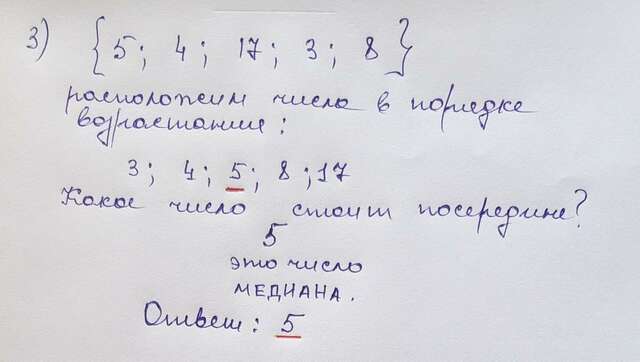 3) {5; 4; 17; 3; 8}
расположим числа в порядке
возрастания:
3; 4; 5; 8; 17
Какое число стоит посередине?
5
это число
МЕДИАНА.
Ответ: 5